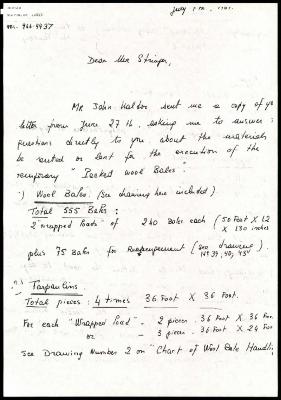 Dear Mr Stringer,
Mr John Kaldor sent me a copy of
letter from June 27th, asking me to answer
questions directly to you about the materials
be rented or lent for the execution of the
temporary "Packed Wool Bales".
1) Wool Bales (See drawing here included)
Total 555 Bales:
2 "wrapped loads" of 240 Bales each (50 Feet X 12
X 130 inches
plus 75 Bales for (see drawing).
N° 39, 40, 43
Tarpaulins.
Total pieces: 4 times 36 Feet X 36 Feet.
For each "Wrapped Load" - 2 pieces. 36 Feet X 36
or - 3 pieces. 36 Feet X 24
See Drawing Number 2 on "Chart of Wool Bale